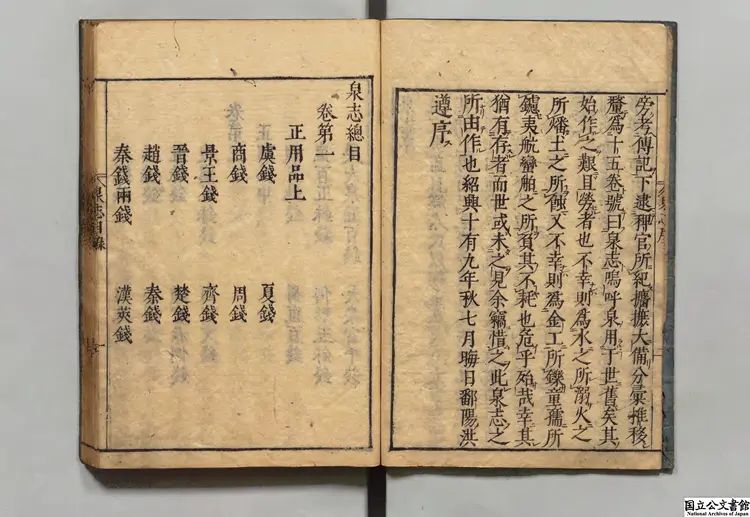 旁考傳記下逮稗官所紀攟摭大備分彙推移
釐為十五卷號曰泉志嗚呼泉用于世舊矣其
始作之艱且勞者也不幸則為水之所溺火之
所燔土之所蝕又不幸則為金工所鑠童孺所
鑢夷航蠻舶之所負其不耗也危乎殆哉幸其
猶有存者而世或未之見余竊惜之此泉志之
所由作也紹興十有九年秋七月晦日鄱陽洪
遵序
泉志序
泉志總目
卷第一
正用品上
虞錢 夏錢
商錢 周錢
景王錢 齊錢
晉錢 楚錢
趙錢 秦錢
秦錢兩錢 漢莢錢
泉志目錄
国立公文書館
National Archives of Japan